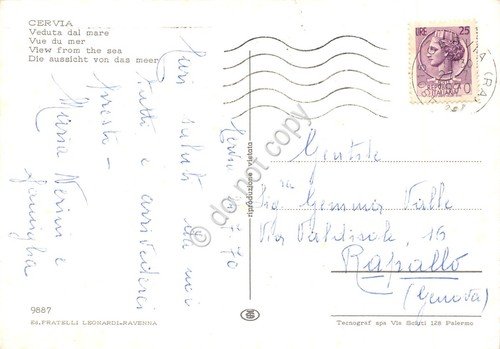 CERVIA
Veduta dal mare
Vue du mer
View from the sea
Die aussicht von das meer
Cervia 7 70
Cari saluti da noi
tutti e arrivederci
presto -
Nerini e
famiglia
riproduzione vietata
do not copy
LIRE 25
REPUBBLICA
ITALIANA
CERVIA (RA)
Gentile
Sig.ra Gemma Valle
Via Valdisole, 15
Rapallo
(Genova)
9887
Ed. FRATELLI LEONARDI-RAVENNA
Tecnograf spa Via Sciuti 128 Palermo